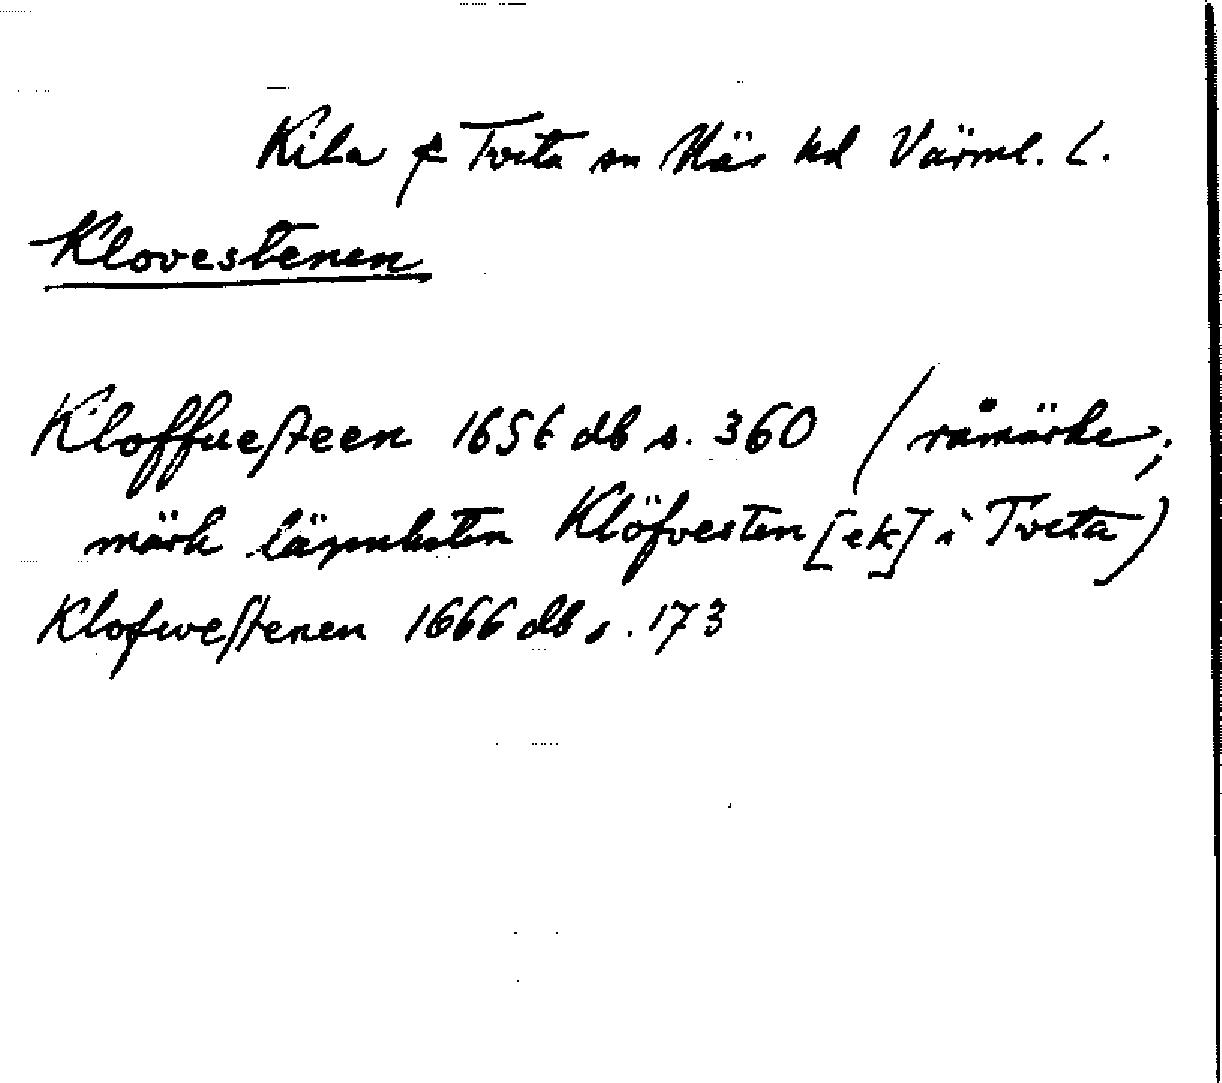 Kila o Tveta sn Näs hd Värml. L.
Klovestenen
Kloffuesteen 1656 db s. 360 (råmärke;
märk lägenheten Klöfvesten [ek] i Tveta)
Klofwestenen 1666 db s. 173